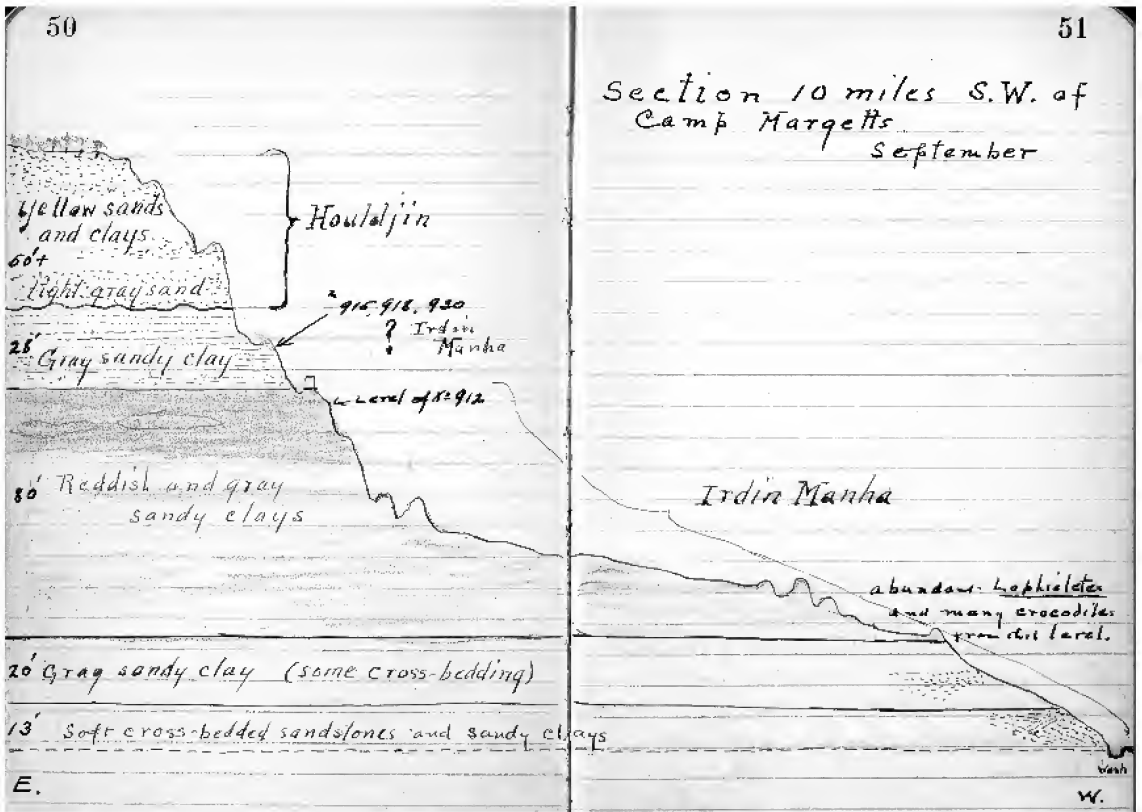 50
Yellow sands
and clays
60'+
light gray sand
Houldjin
915, 918, 920
? Irdin
Manha
25' Gray sandy clay
Level of No 912
80' Reddish and gray
sandy clays
20' Gray sandy clay (some cross-bedding)
13' Soft cross-bedded sandstones and sandy clays
E.
51
Section 10 miles S.W. of
Camp Margetts
September
Irdin Manha
abundant Lophialetes
and many crocodiles
from this level.
Wash
W.